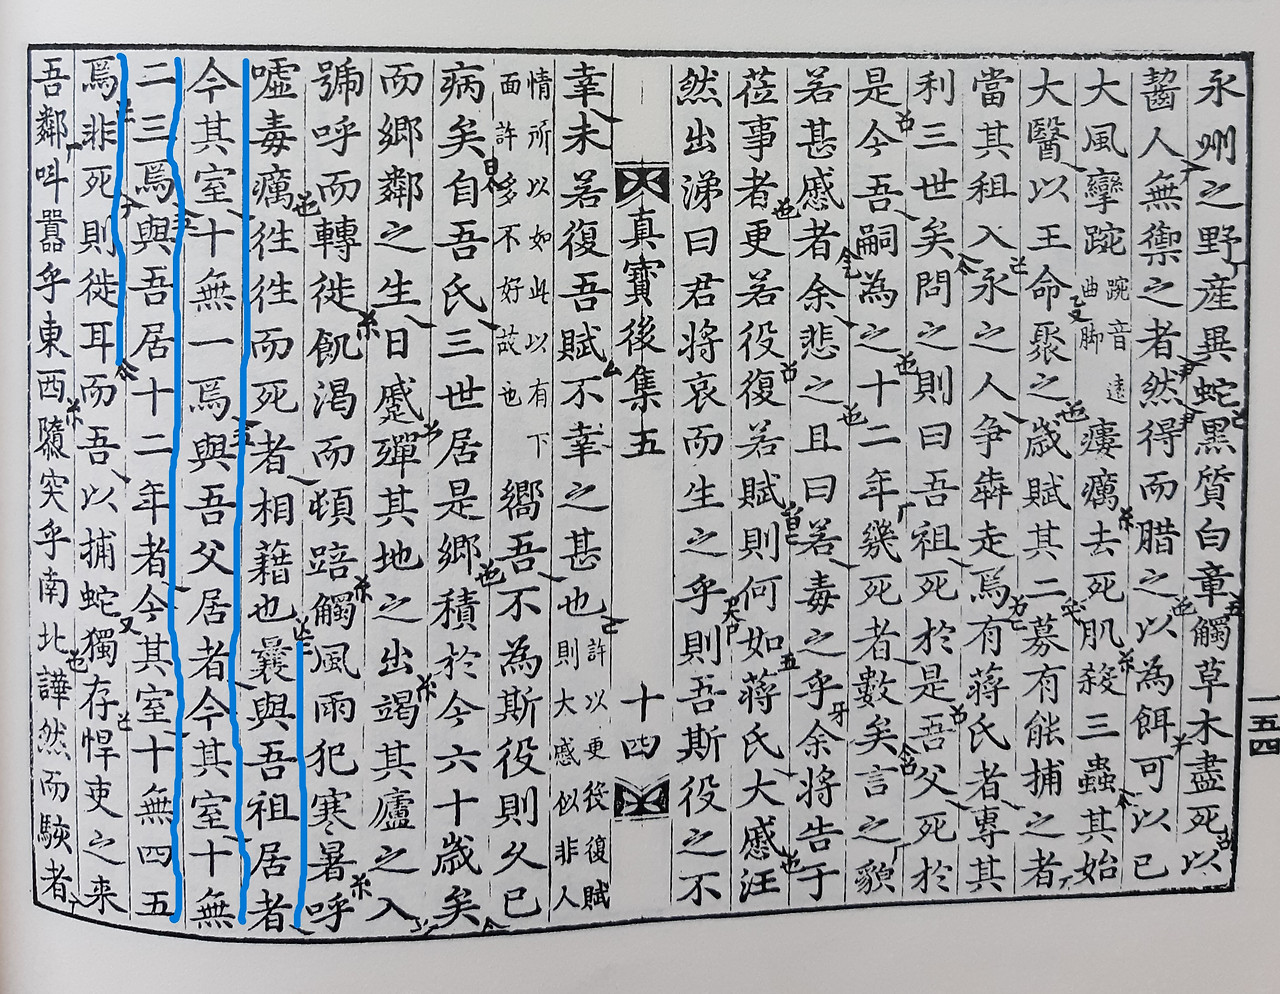 永州之野産異蛇黑質白章觸草木盡死以
齧人無禦之者然得而腊之以為餌可以已
大風攣踠踠音遠曲脚瘻癘去死肌殺三蟲其始
大醫以王命聚之歲賦其二募有能捕之者
當其租入永之人争犇走焉有蔣氏者專其
利三世矣問之則曰吾祖死於是吾父死於
是今吾嗣為之十二年幾死者數矣言之貌
若甚慼者余悲之且曰若毒之乎余將告于
莅事者更若役復若賦則何如蔣氏大慼汪
然出涕曰君将哀而生之乎則吾斯役之不
真寳後集五 十四
幸未若復吾賦不幸之甚也許以更役復賦則大慼似非人
情所以如此以有下面許多不好故也嚮吾不為斯役則久已
病矣自吾氏三世居是鄉積於今六十歲矣
而鄉鄰之生日蹙殫其地之出竭其廬之入
號呼而轉徙飢渴而頓踣觸風雨犯寒暑呼
嘘毒癘徃徃而死者相藉也曩與吾祖居者
今其室十無一焉與吾父居者今其室十無
二三焉與吾居十二年者今其室十無四五
焉非死則徙耳而吾以捕蛇獨存悍吏之来
吾鄰叫囂乎東西隳突乎南北譁然而駭者
一五四